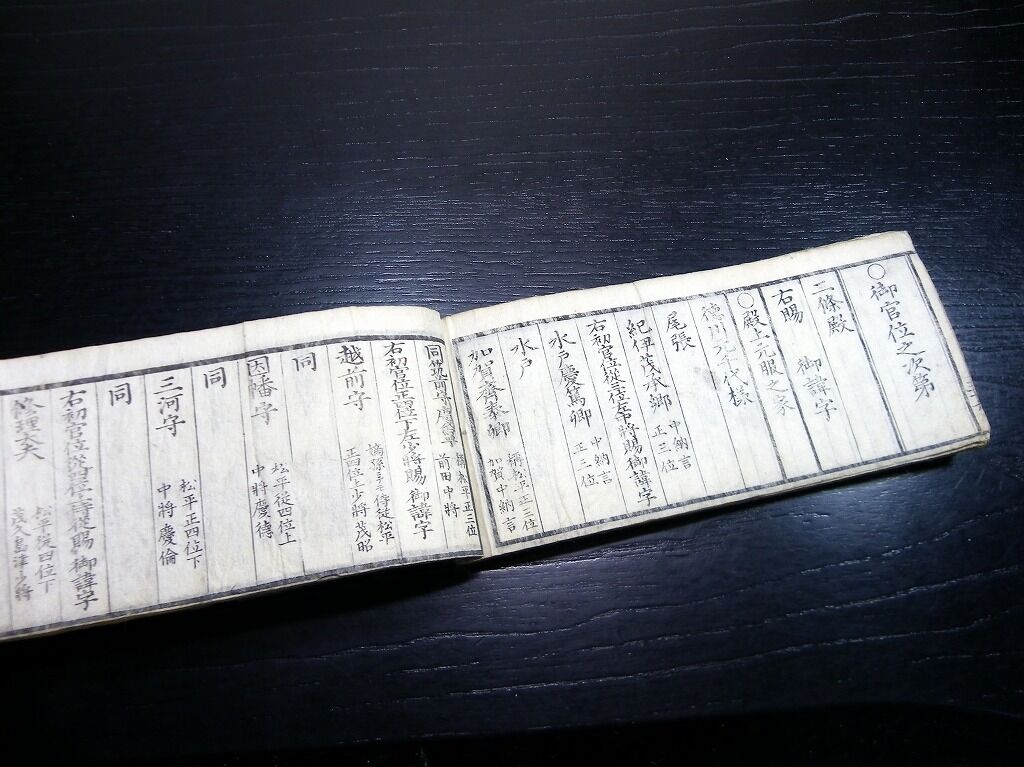 〇御官位之次第
二條殿
右賜 御諱字
〇殿上元服之家
徳川元千代様
尾張 中納言 正三位
紀伊茂承卿
右初官位從三位左中將賜御諱字
水戸慶篤卿 中納言 正三位
水戸
加賀齊泰卿 稱松平正三位 加賀中納言
同 稱松平正三位 前田中將
右初官位正四位下左少將賜御諱字
越前字 侍従松平 正四位上少將茂昭
同
因幡字 松平從四位上 中將慶徳
同
三河字 松平正四位下 中將慶倫
同
右初官位從四位下侍從賜御諱字
修理大夫 松平從四位下 茂久島津少將